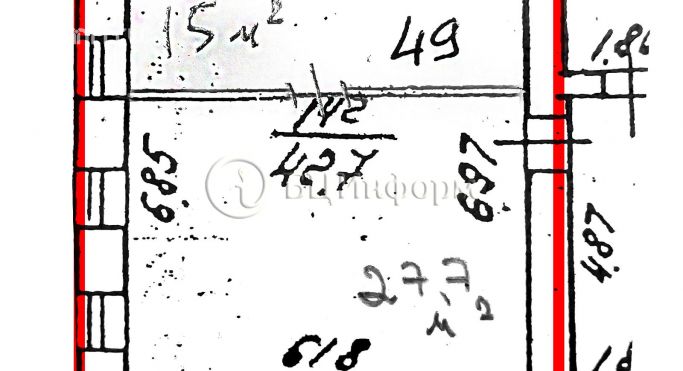 15 м²
49
1.86
142
42.7
6.85
6.97
БЦИнформ
4.87
27,7
м²
618